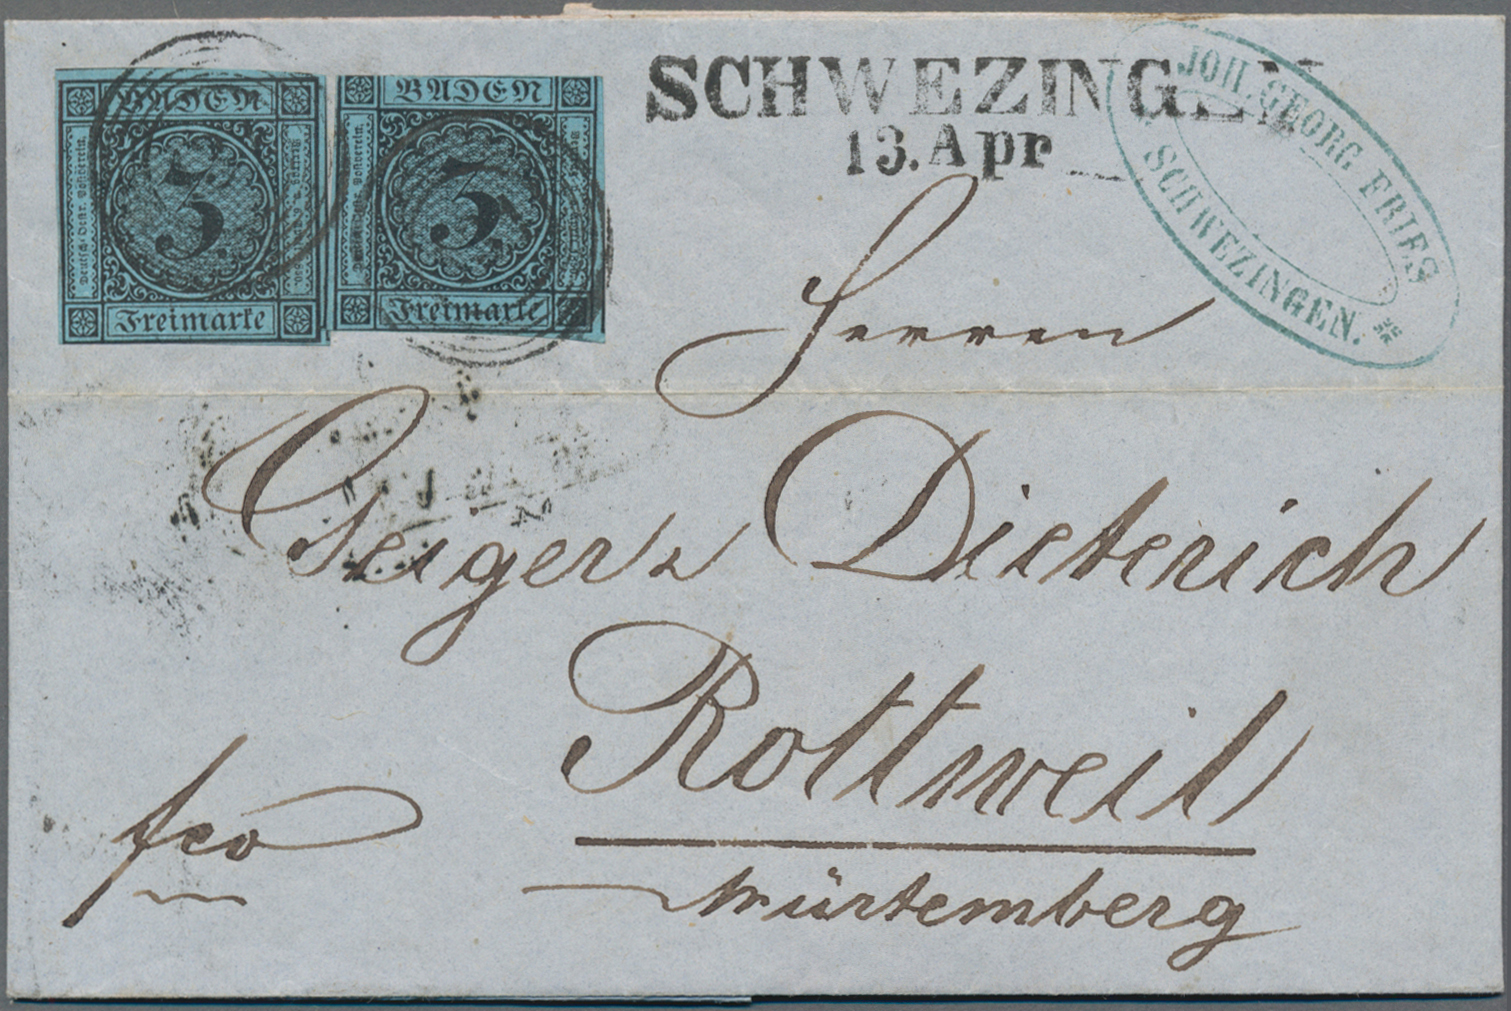 BADEN
3.
Freimarke
Deutsch-Oestr. Postverein.
BADEN
3.
Freimarke
SCHWEZINGEN
13. Apr
JOH. GEORG FRIES
SCHWEZINGEN.
Herren
Geiger & Dieterich
Rottweil
Würtemberg
fco